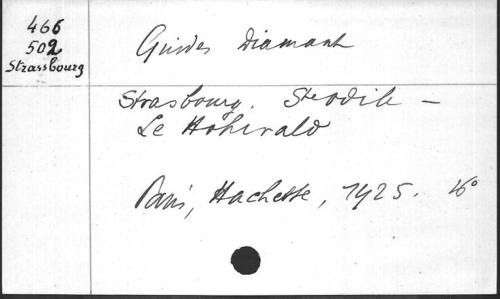 466
502
Strassbourg
Guides Diamant
Strasbourg. Ste Odile –
Le Hohwald
Paris, Hachette, 1925. 16°